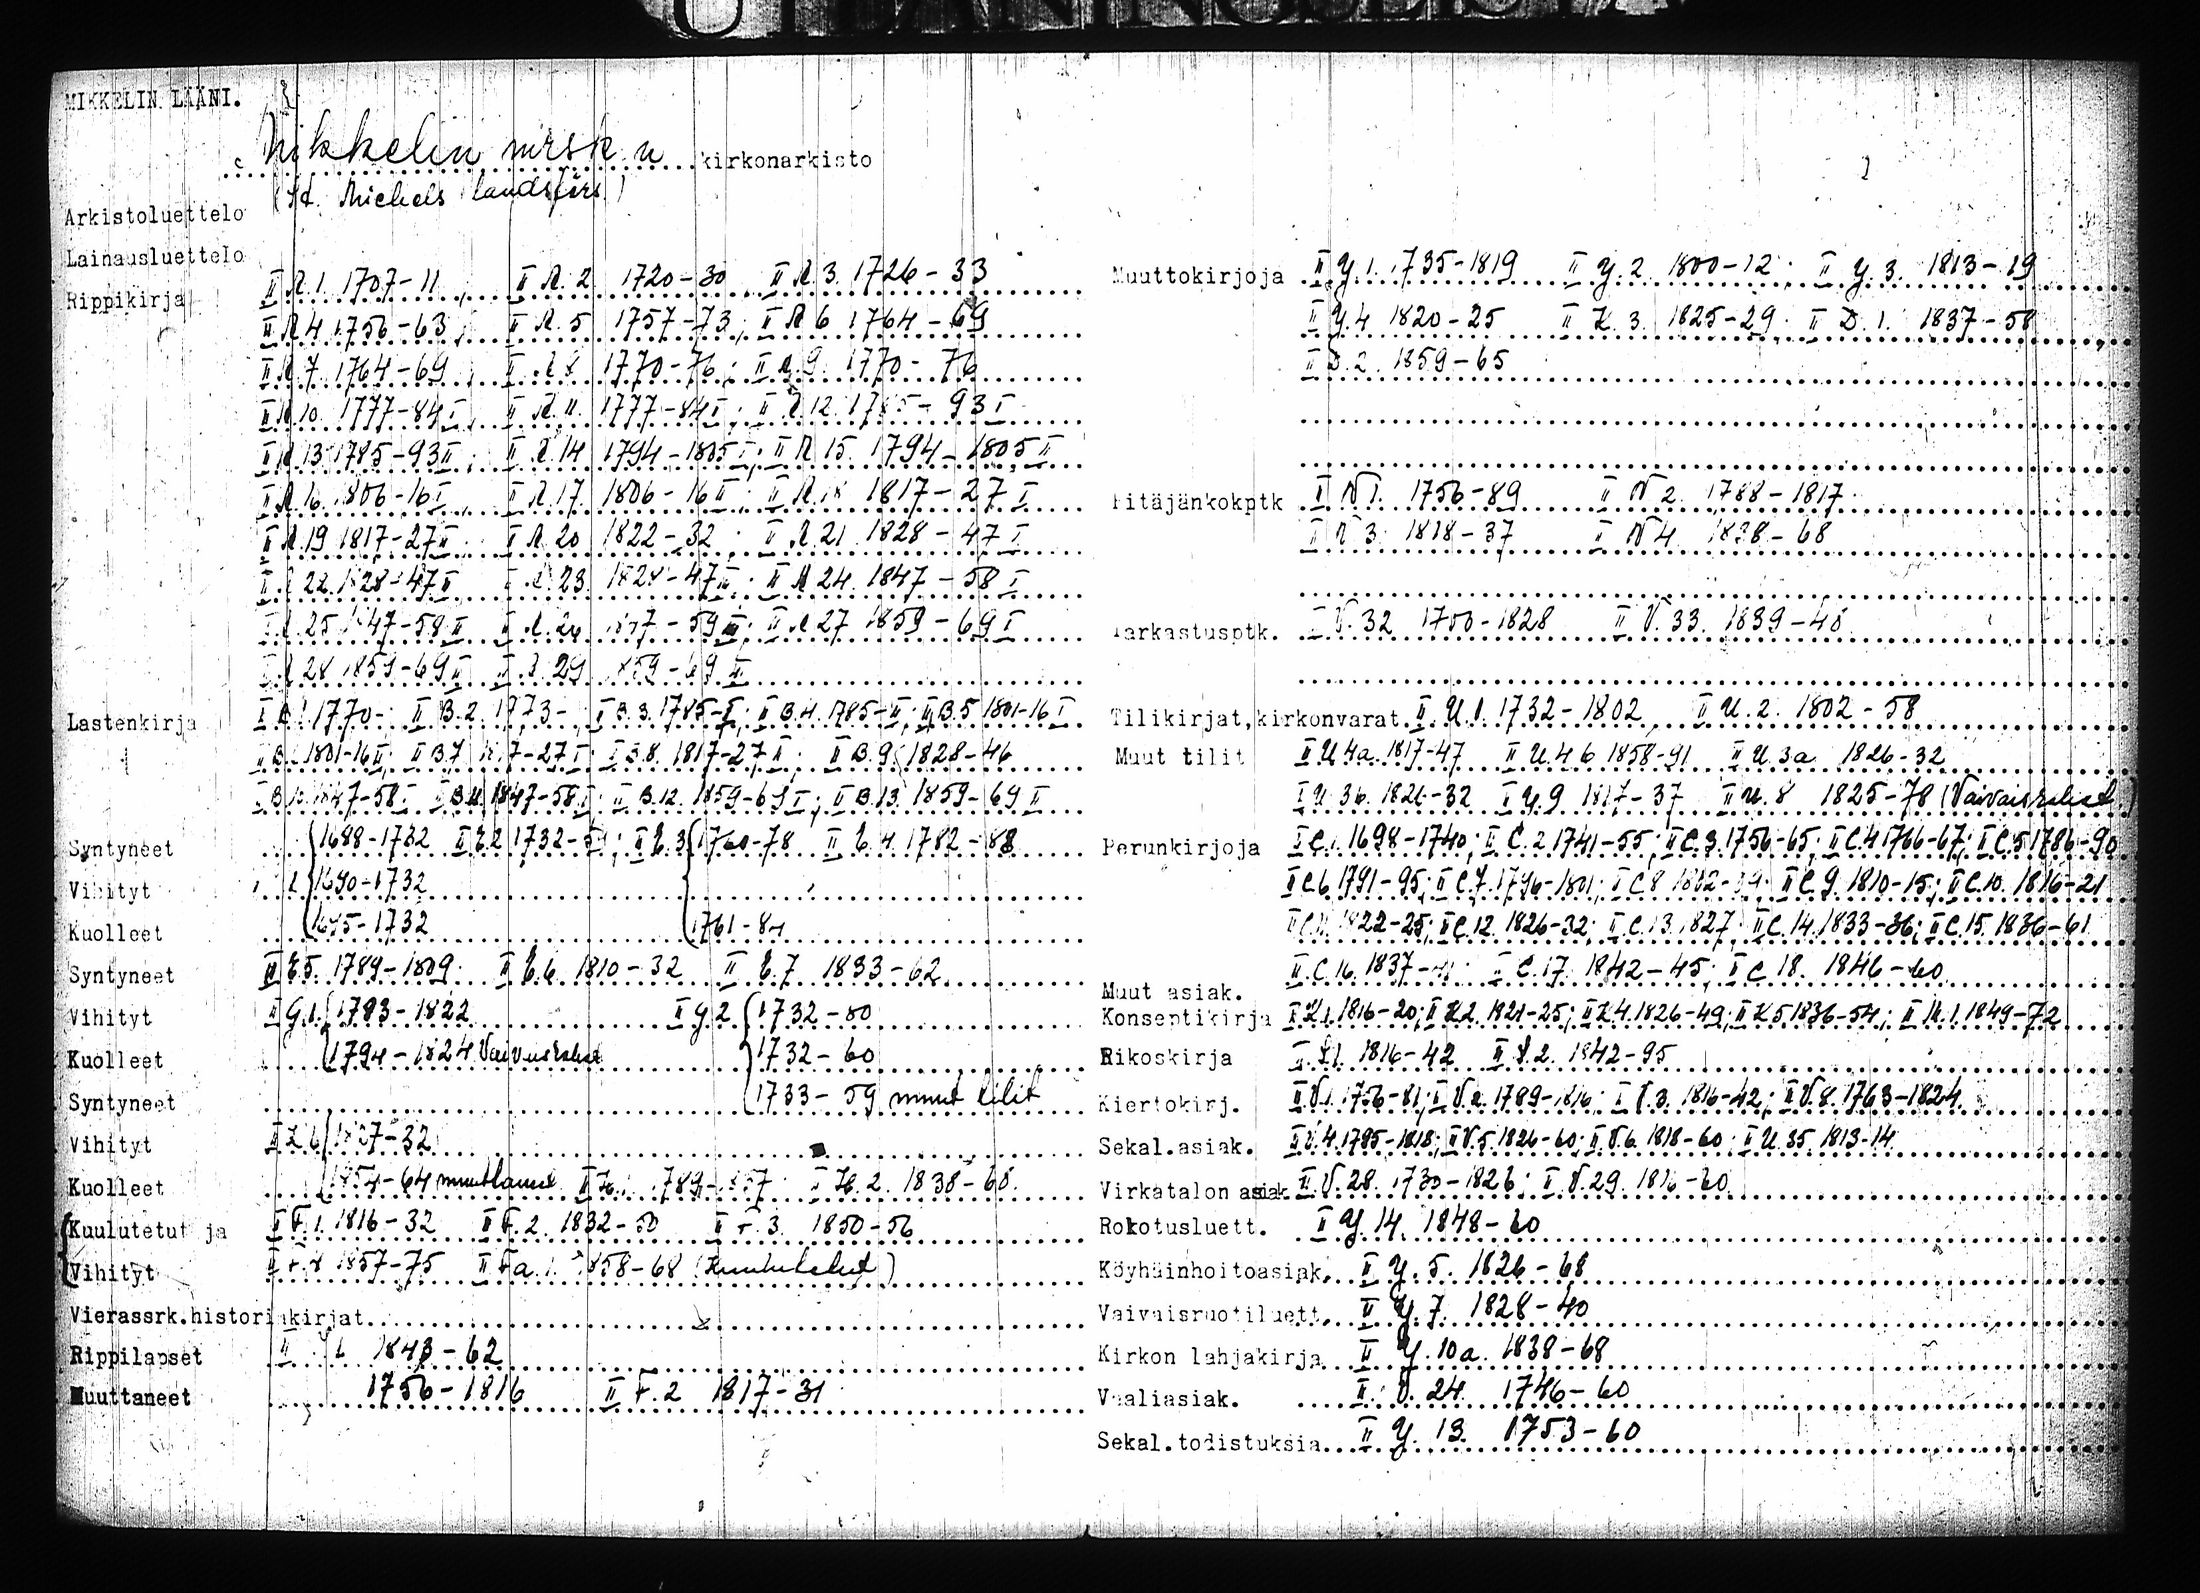 MIKKELIN LÄÄNI.
Mikkelin mrsk n kirkonarkisto
(St. Michels landsförs.)
Arkistoluettelo
Lainausluettelo
Rippikirja II A.1. 1707-11, II A.2 1720-30 II A.3. 1726-33
II A.4 1756-63, II A.5 1757-73; II A 6 1764-69
II A.7 1764-69, II A.8 1770-76; II A.9. 1770-76
II A.10. 1777-84 I, II A.11. 1777-84 I; II A.12. 1785-93 I
II A.13 1785-93 II; II A.14 1794-1805 I; II A 15. 1794-1805 II
II A.16. 1806-16 I, II A.17. 1806-16 II; II A.18 1817-27 I
II A.19 1817-27 II II A.20 1822-32; II A.21 1828-47 I
II A 22. 1828-47 II II A.23. 1828-47 II; II A 24. 1847-58 I
II A.25 1847-58 II II A.26 -59 II; II A 27 1859-69 I
II A 28 1859-69 II II A.29 1859-69 II
Lastenkirja II B.1. 1770- II B.2. 1773- II B.3. 1785- I; II B.4. 1785- II; II B.5 1801-16 I
II B. 1801-16 II; II B.7 1817-27 I; II B.8. 1817-27 II; II B.9. 1828-46
II B.10. 1847-58 I II B.11. 1847-58 I; II B.12. 1859-69 I; II B.13. 1859-69 II
Syntyneet 1688-1732 II 2 1732- ; II 3 1760-78 II 4. 1782-88
Vihityt 1690-1732
Kuolleet -1732 1761-
Syntyneet II 5. 1789-1809. II 6. 1810-32 II 7 1833-62
Vihityt II G.1. 1793-1822 II G.2 1732-80
Kuolleet 1794-1824 1732-60
Syntyneet 1733-59 muut tilit
Vihityt II 1827-32
Kuolleet 1854-64 muuttaneet II H. 1789- II H.2. 1838-60.
Kuulutetut ja II F.1. 1816-32 II F.2. 1832-50 II F.3. 1850-56
Vihityt II F.4 1857-75 II Fa.1. 1858-68 (Kuulutetut)
Vierassrk.historiakirjat
Rippilapset II 1843-62
Muuttaneet 1756-1816 II F.2 1817-31
Muuttokirjoja II Y.1. 1735-1819 II Y.2. 1800-12; II Y.3. 1813-19
II Y.4 1820-25 II K.3. 1825-29; II D.1. 1837-58
II D.2. 1859-65
Pitäjänkokptk II N 1. 1756-89 II N 2. 1788-1817.
II N 3. 1818-37 II N 4 1838-68
Tarkastusptk. II V.32 1750-1828 II V.33. 1839-40
Tilikirjat,kirkonvarat II U.1. 1732-1802, II U.2. 1802-58
Muut tilit II U 4a. 1817-47 II U.4 b 1858-91 II U.3a 1826-32
II U 3b. 1826-32 II Y.9 1817-37 II U.8 1825-78
Perunkirjoja II C.1. 1698-1740; II C.2 1741-55; II C.3. 1756-65; II C.4 1766-67; II C.5 1786-90
II C.6. 1791-95; II C.7. 1796-1801; II C 8 1802-09 II C.9. 1810-15; II C.10. 1816-21
II C.11. 1822-25; II C.12. 1826-32; II C.13. 1827; II C.14. 1833-36; II C.15. 1836-61
II C.16. 1837-41; II C.17. 1842-45; II C 18. 1846-60
Muut asiak.
Konseptikirja II K.1. 1816-20; II K 2. 1821-25; II K.4. 1826-49; II K 5 1836-54; II K.1. 1849-72
Rikoskirja II 1. 1816-42 II 2. 1842-95
Kiertokirj. II V.1. 1756-81; II V.2. 1789-1816; II V.3. 1816-42; II V.8. 1763-1824
Sekal.asiak. II V.4. 1785-1818; II V.5. 1826-60; II V.6. 1818-60; II U.35. 1813-14
Virkatalon asiak II V.28. 1730-1826; II V.29. 1816-60
Rokotusluett. II Y.14. 1848-60
Köyhäinhoitoasiak. II Y.5. 1826-68
Vaivaisruotiluett. II Y.7. 1828-40
Kirkon lahjakirja II Y.10a. 1838-68
Vaaliasiak. II V.24. 1746-60
Sekal.todistuksia II Y.13. 1753-60